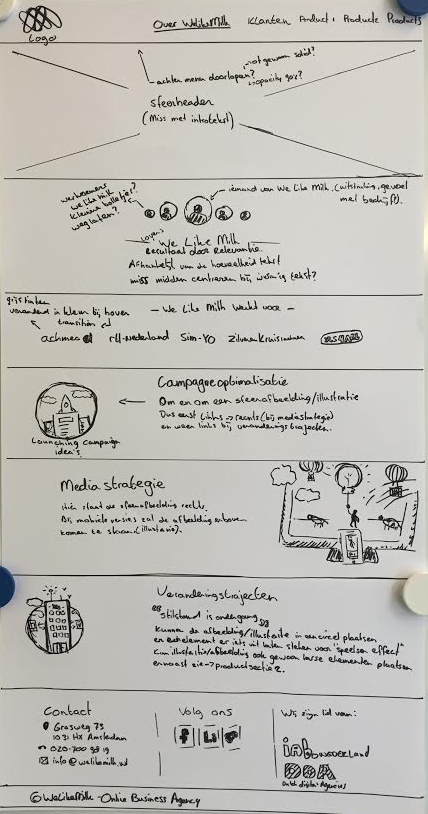 Logo
Over WelikeMilk Klanten Product 1 Product 2 Product 3
niet gewoon solid?
achter menu doorlopen? opacity 90%?
sfeerheader
(Misschien met introtekst)
werknemers
we like milk
kleinere bolletjes?
weglaten?
iemand van We Like Milk, (uitstraling, gevoel
met bedrijf).
We Like Milk
Resultaat door Relevantie
Afhankelijk van de hoeveelheid tekst
miss midden centreren bij weinig tekst?
grijstinten
veranderd in kleur bij hover
transition
- We Like Milk Werkt voor -
achmea rtl-nederland Sim-yo Zilveren Kruis
Campagneoptimalisatie
Om en om een sfeerafbeelding/illustratie
Dus eerst links -> rechts (bij mediastrategie)
en weer links bij veranderingstrajecten.
Launching campaign
idea's
Media strategie
Hier staat de sfeerafbeelding rechts.
Bij mobiele versies zal de afbeelding erboven
komen te staan (illustratie).
Veranderingstrajecten
"Stilstand is ondergang"
Kunnen de afbeelding/illustratie in een cirkel plaatsen
en een element er iets uit laten steken voor "speelser effect"
illustratie/afbeelding ook gewoon losse elementen plaatsen
ernaast zie -> productsectie 2.
Contact
Grasweg 73
1031 HX Amsterdam
info@welikemilk.nl
Volg ons
f
Wij zijn lid van:
iab NEDERLAND
DDA
dutch digital Agencies
© WeLikeMilk - Online Business Agency